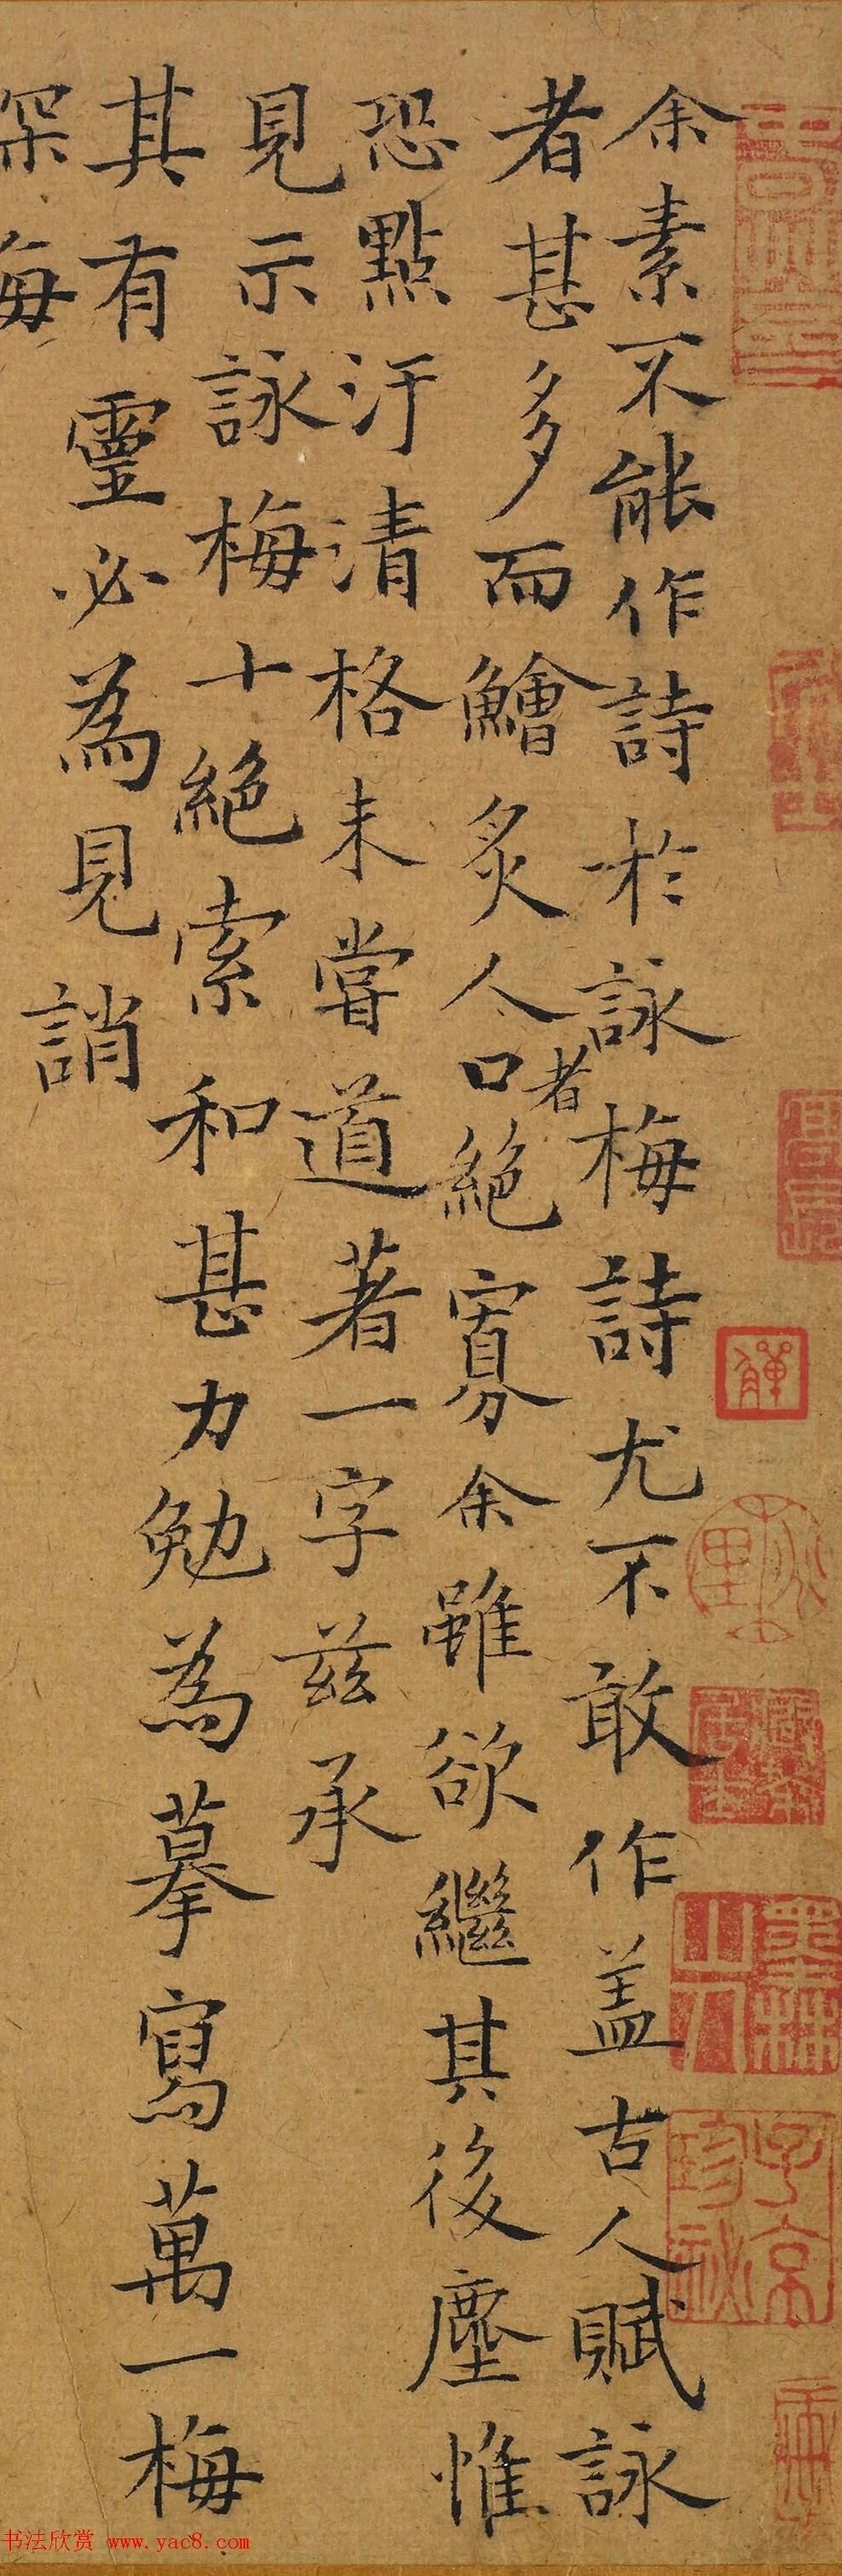 余素不能作詩於詠梅詩尤不敢作盖古人賦詠
者甚多而鱠炙人口者絕寡余雖欲繼其後塵惟
恐點汙清格未嘗道著一字兹承
見示詠梅十絕索和甚力勉為摹寫萬一梅
其有靈必為見誚
探梅
墨林山人
子京珍秘
书法欣赏 www.yac8.com